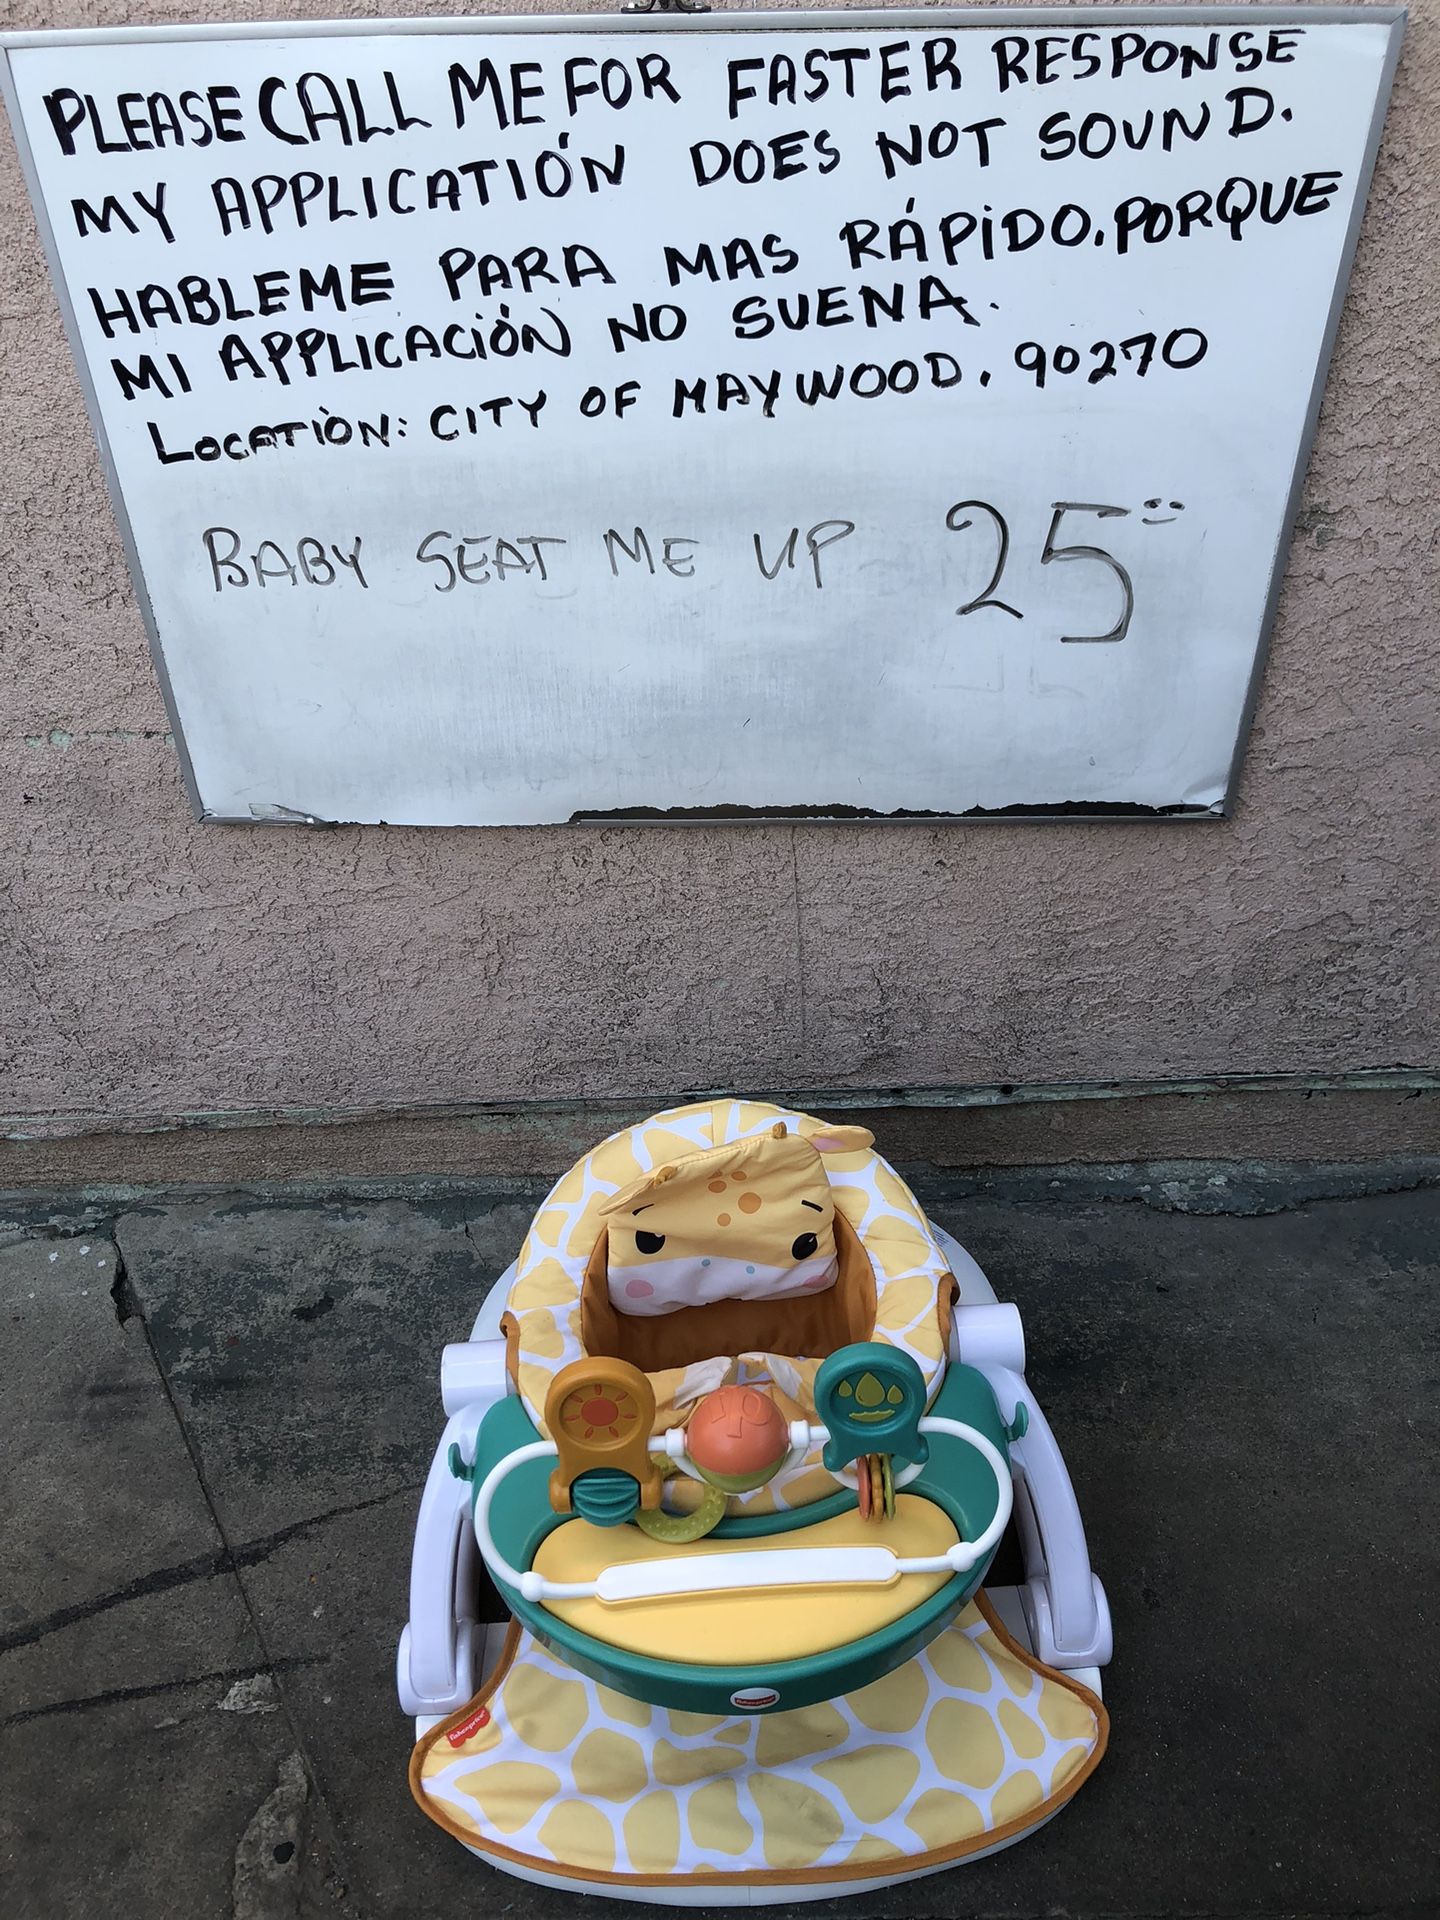 PLEASE CALL ME FOR FASTER RESPONSE
MY APPLICATIÓN DOES NOT SOUND.
HABLEME PARA MAS RÁPIDO. PORQUE
MI APPLICACIÓN NO SUENA.
LOCATIÒN: CITY OF MAYWOOD. 90270
BABY SEAT ME UP 25
fisher-price
fisher-price